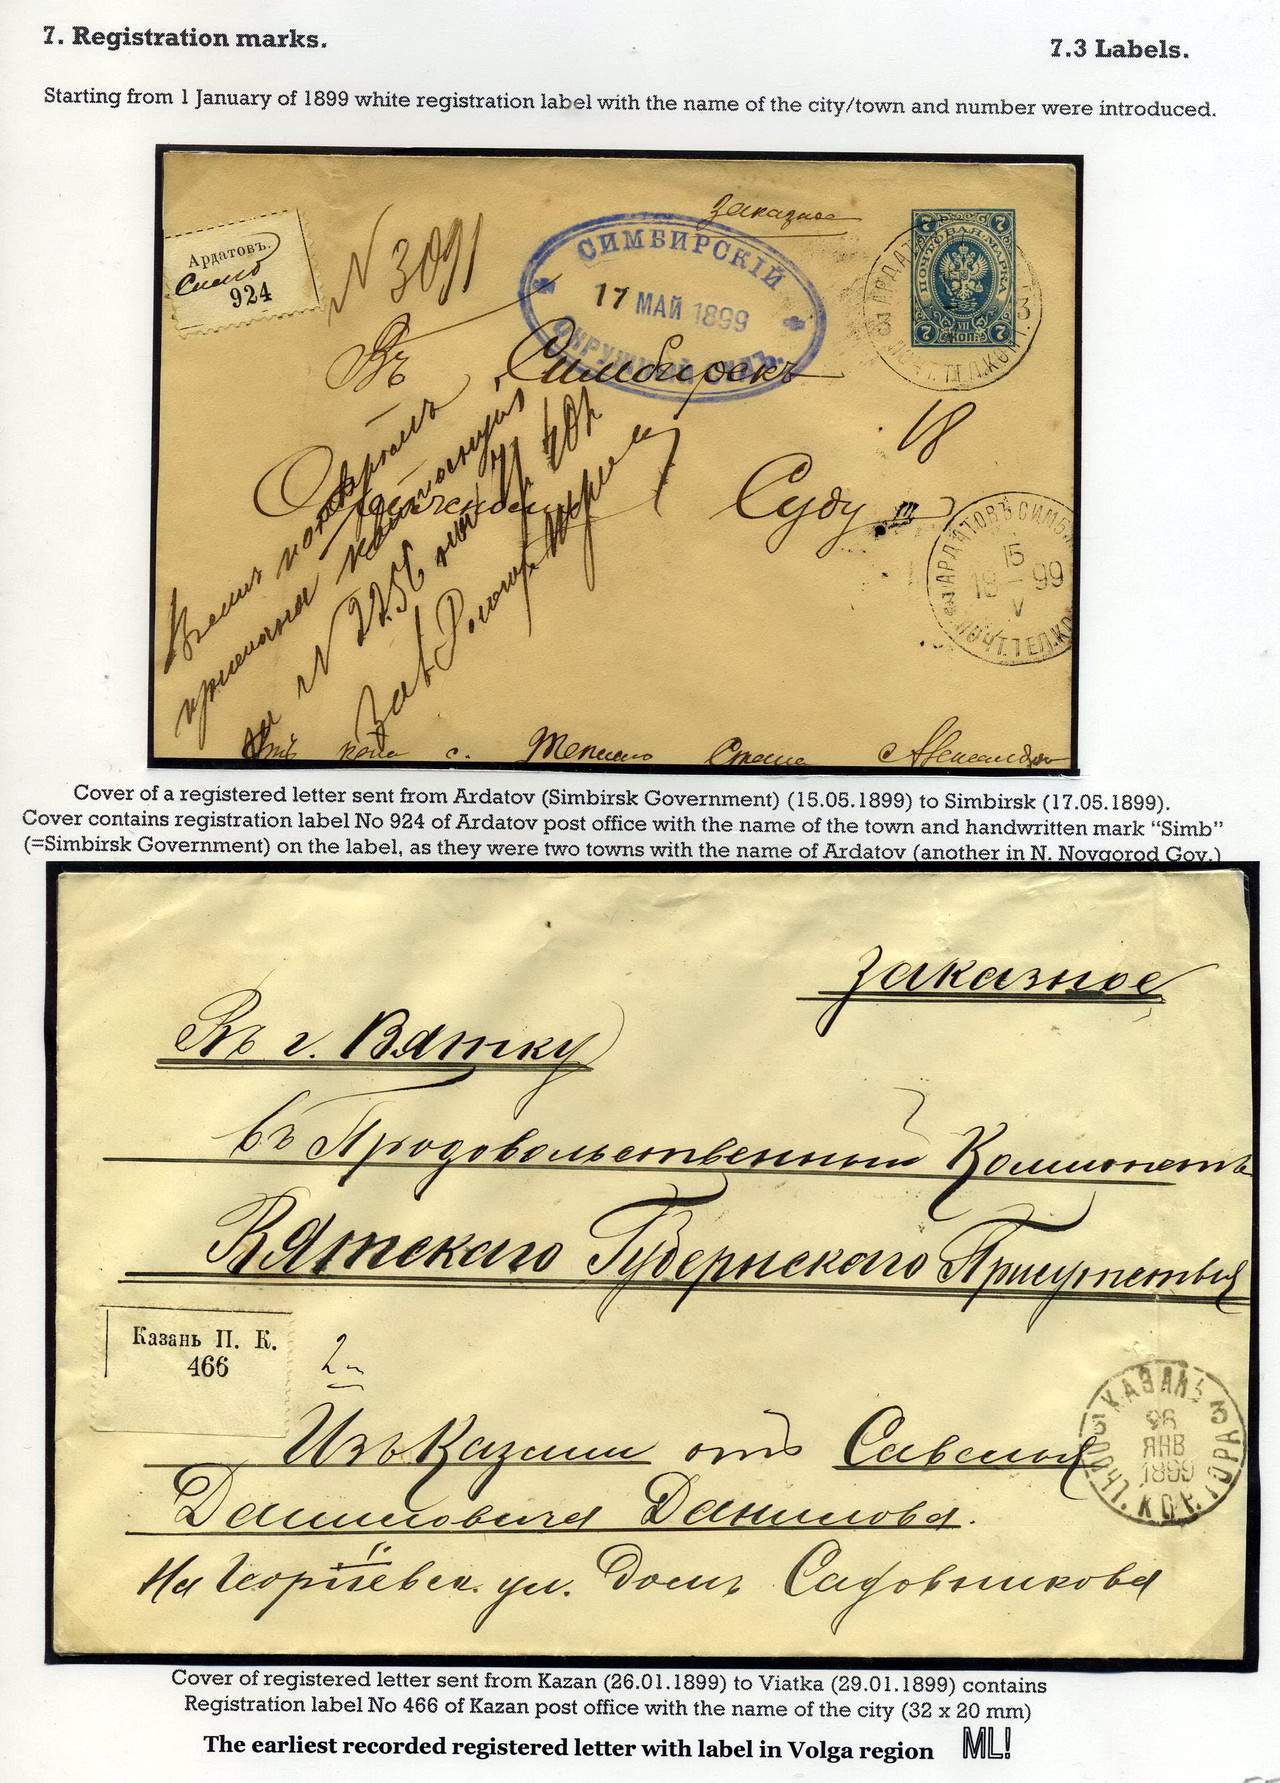 7. Registration marks.
7.3 Labels.
Starting from 1 January of 1899 white registration label with the name of the city/town and number were introduced.
Ардатовъ.
924
N 3091
Заказное
СИМБИРСКІЙ
17 МАЙ 1899
ОКРУЖНОЙ СУДЪ.
7 7
ПОЧТОВАЯ МАРКА
VII
7 КОП. 7
Въ Симбирскъ
18
Суду
N 2256
АРДАТОВЪ СИМБ.
15
18 99
V
ПОЧТ. ТЕЛ. КО
с.
Cover of a registered letter sent from Ardatov (Simbirsk Government) (15.05.1899) to Simbirsk (17.05.1899).
Cover contains registration label No 924 of Ardatov post office with the name of the town and handwritten mark “Simb”
(=Simbirsk Government) on the label, as they were two towns with the name of Ardatov (another in N. Novgorod Gov.)
Заказное
Въ г. Вятку
въ Продовольственный Комитетъ
Вятскаго Губернскаго Присутствія
Казань П. К.
466
Изъ Казани отъ Савелія
Даниловича Данилова.
На Георгіевск. ул. Домъ Садовникова
3 КАЗАНЬ 3
26
ЯНВ
1899
ПОЧТ. КОН. ГОРА
Cover of registered letter sent from Kazan (26.01.1899) to Viatka (29.01.1899) contains
Registration label No 466 of Kazan post office with the name of the city (32 x 20 mm)
The earliest recorded registered letter with label in Volga region ML!